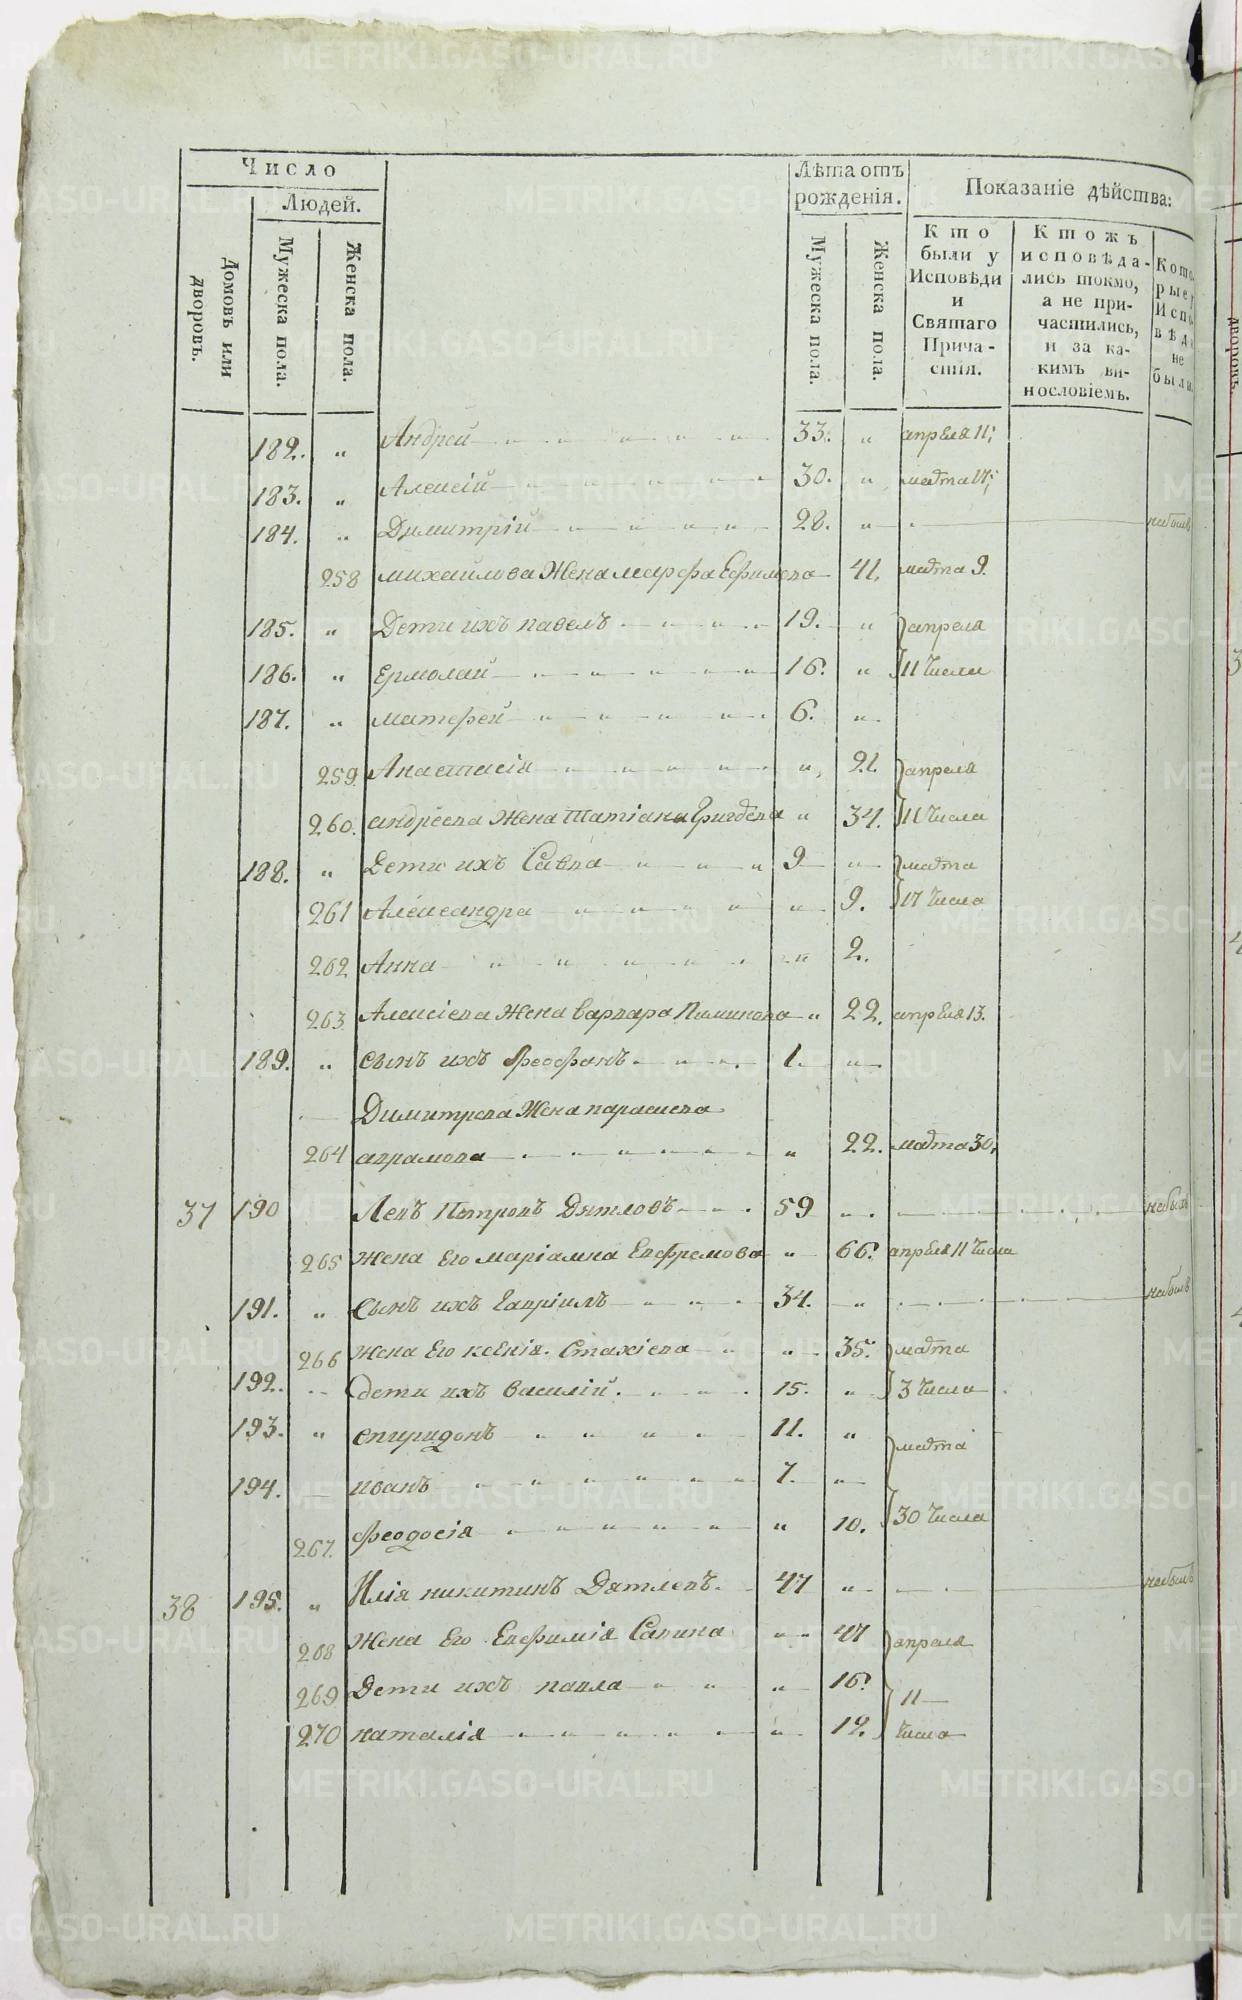 Число
Людей.
Домовъ или дворовъ.
Мужеска пола.
Женска пола.
Лѣта отъ рожденія.
Мужеска пола.
Женска пола.
Показаніе дѣйства:
Кто были у Исповѣди и Святаго Причастія.
Ктожъ исповѣдались токмо, а не причастились, и за какимъ винословіемъ.
182. „ Андрей 33. „ апреля 11;
183. „ Алексій 30. „ марта 17;
184. „ Димитрій 28. „ небылъ
258 михаилова Жена марфа Ефимова 41, марта 9.
185. „ Дети ихъ павелъ 19. „ апреля
186. „ Ермолай 16. „ 11 числа
187. „ матфей 6. „
259. Анастасія „ 21. апреля
260. андреева Жена Татіана Григорева „ 34. 11 числа
188. „ Дети ихъ Савва 9 „ марта
261 Александра „ 9. 17 числа
262 Анна „ 2.
263 Алексіева Жена варвара Пиминова „ 22. апреля 13.
189. „ сынъ ихъ Феофанъ 1. „
Димитрева Жена параскева
264 аврамова „ 22. марта 30,
37 190 Левъ Петровъ Дятловъ 59 „ небылъ
265 жена Его маріамна Евфремова „ 66. апреля 11 числа
191. „ сынъ ихъ Гавріилъ 34. „ небылъ
266 жена Его ксенія Стахіева „ 35. марта
192. дети ихъ василій 15. „ 3 числа
193. „ спиридонъ 11. „ марта
194. иванъ 7. „
267. феодосія „ 10. 30 числа
38 195. „ Илія никитинъ Дятлевъ. 47 „ небылъ
268 жена Его Евфимія Савина „ 47 апреля
269 Дети ихъ павла „ 16. 11
270 наталія „ 12. числа